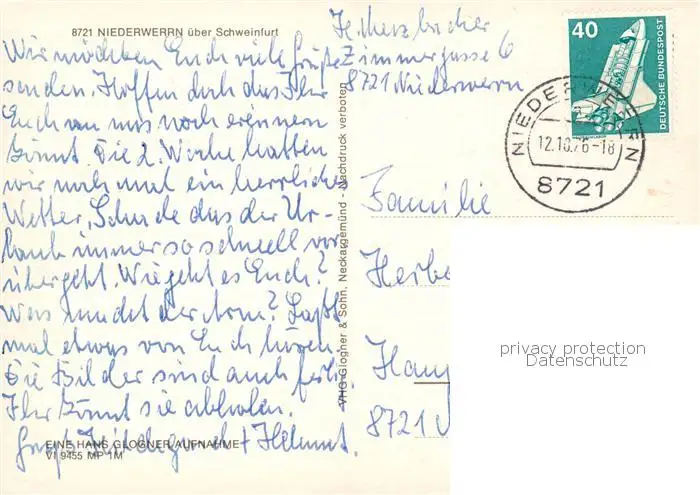 8721 NIEDERWERRN über Schweinfurt
Wir möchten Euch viele Grüße
senden. Hoffen doch das Ihr
Euch an uns noch erinnern
könnt. Die 2. Woche hatten
wir noch mal ein herrliches
Wetter, Schade das der Ur-
laub immer so schnell vor
übergeht. Wie geht es Euch?
Was macht der Arm? Laßt
mal etwas von Euch hören.
Die Bilder sind auch fertig.
Ihr könnt sie abholen.
Gruß Hildegard + Helmut.
EINE HANS GLOGNER AUFNAHME
VI 9455 MP 1M
VHG Glogner & Sohn, Neckargemünd - Nachdruck verboten
H. Merzbacher
Zimmergasse 6
8721 Niederwerrn
40
DEUTSCHE BUNDESPOST
NIEDERWERRN
12.10.76-18
8721
Familie
Herbe
Hau
8721
privacy protection
Datenschutz